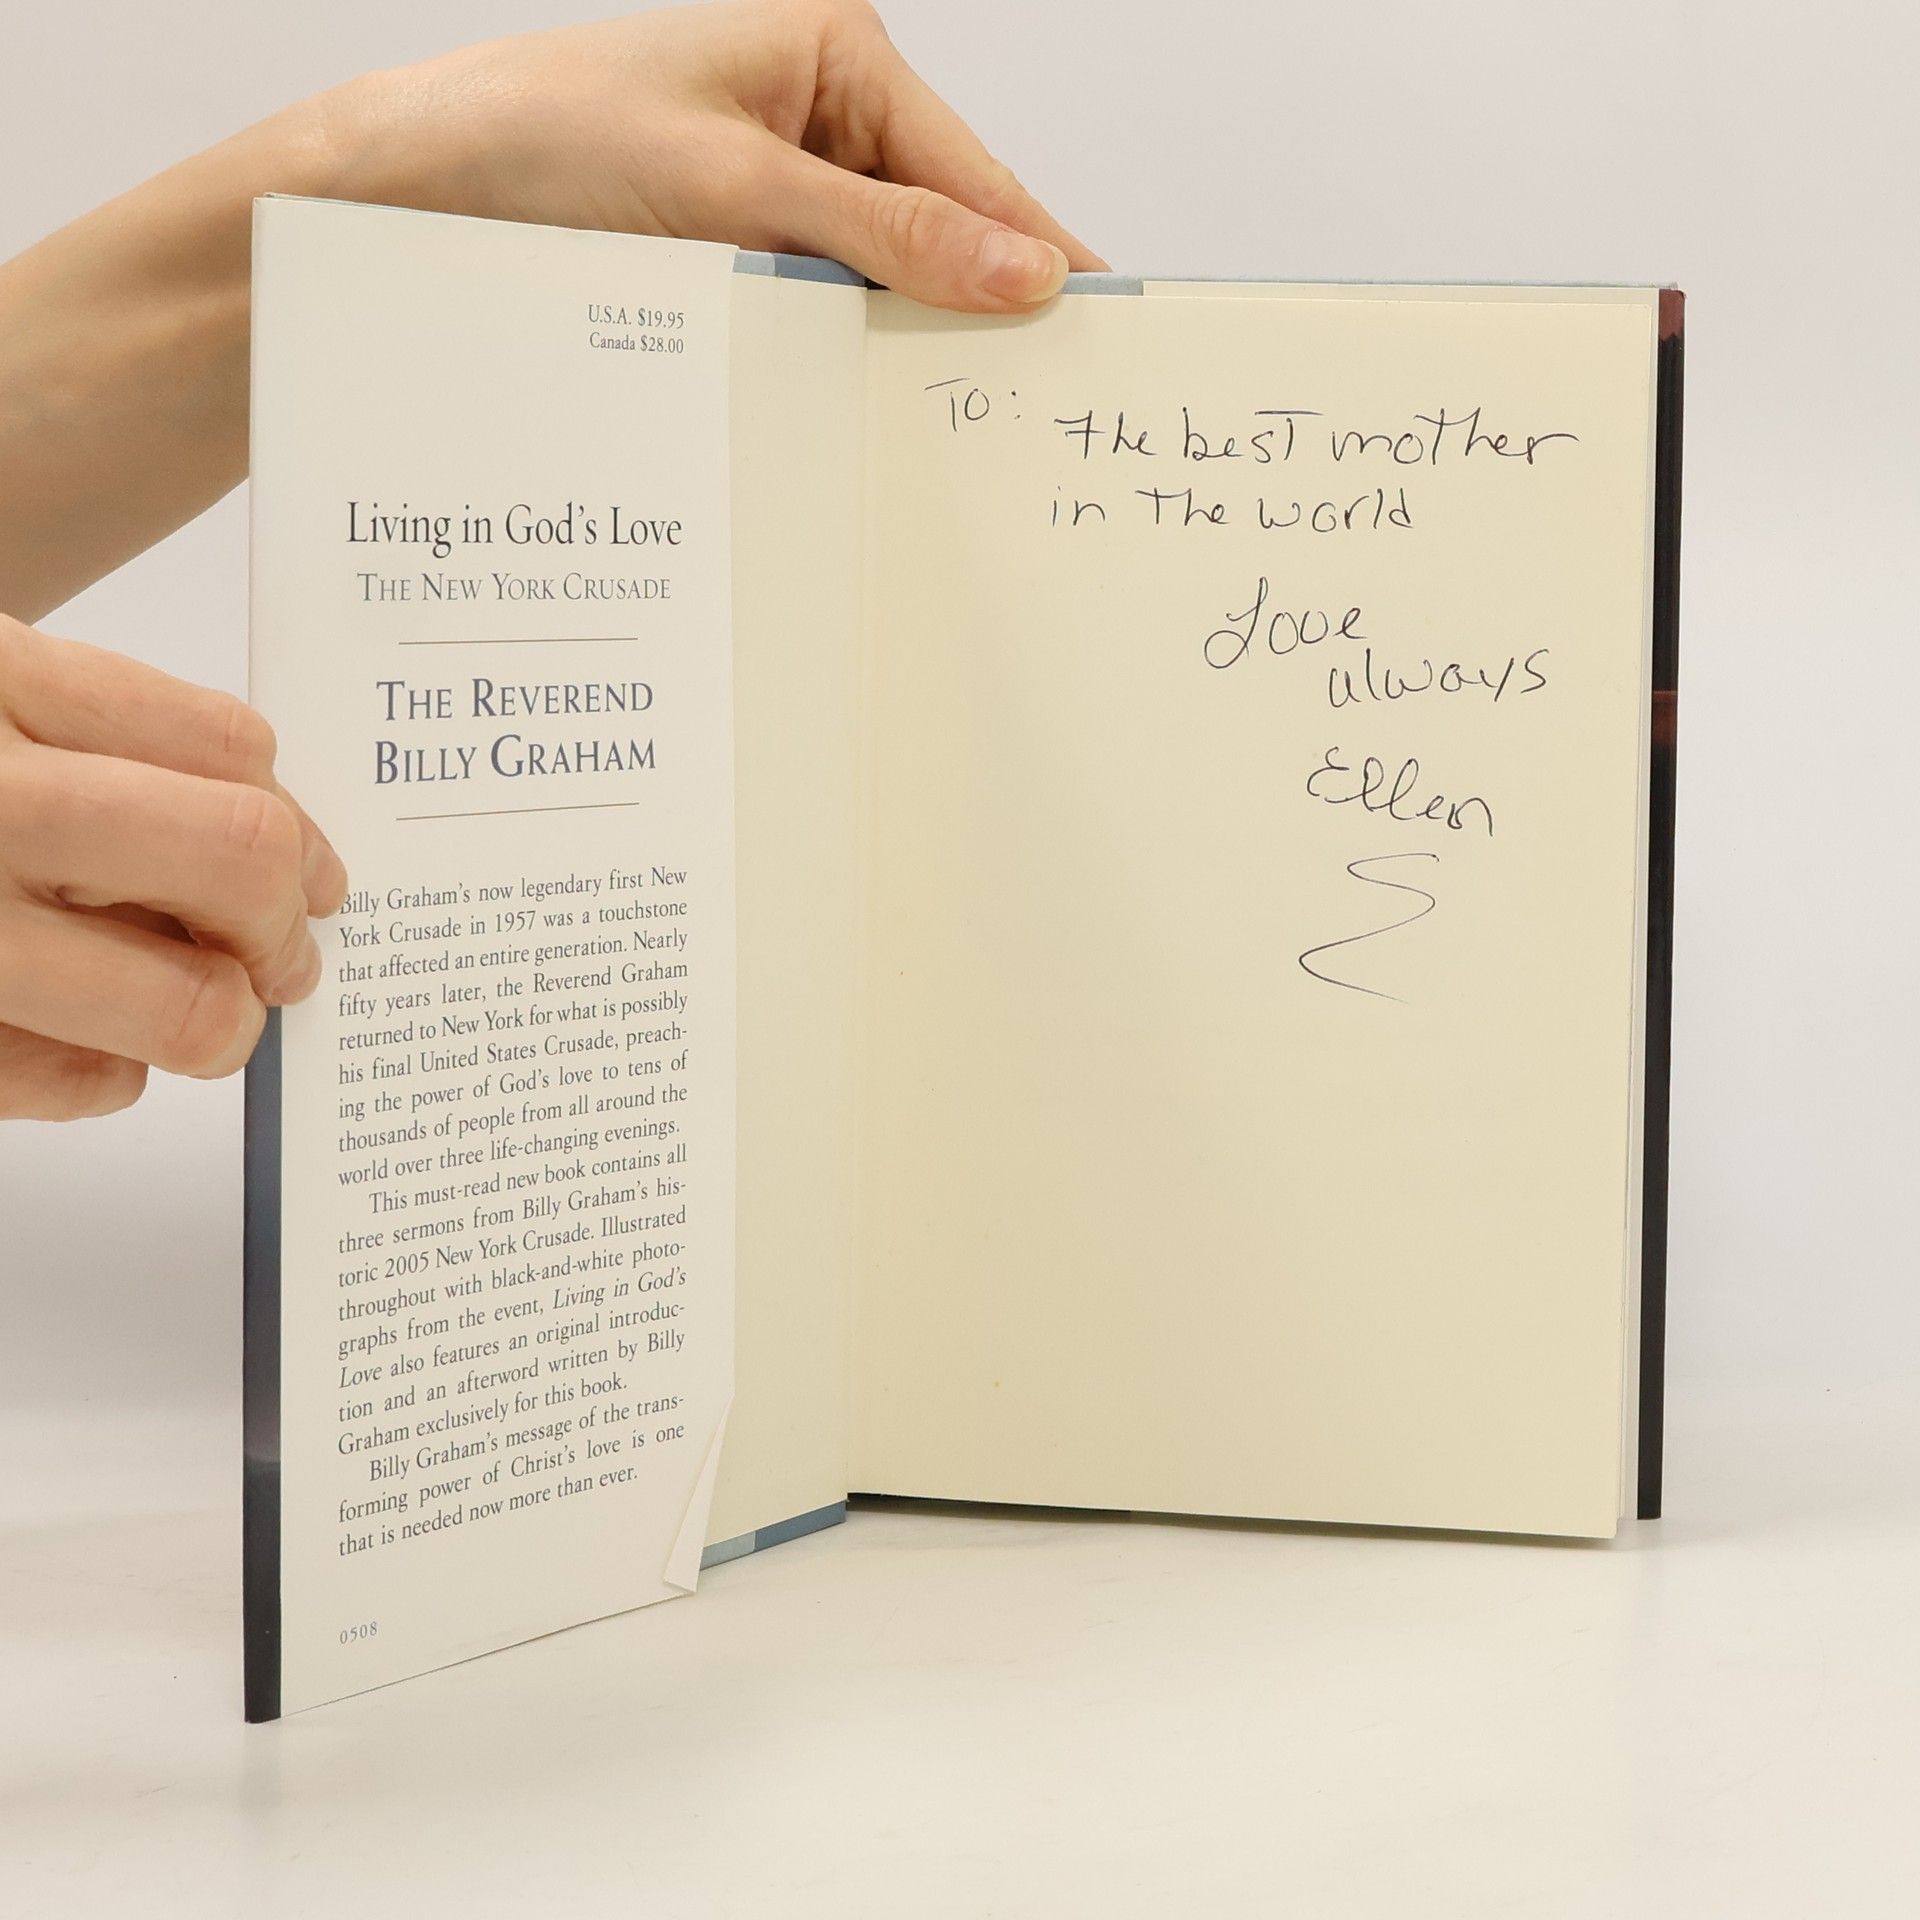 U.S.A. $19.95
Canada $28.00
Living in God's Love
THE NEW YORK CRUSADE
THE REVEREND
BILLY GRAHAM
Billy Graham's now legendary first New
York Crusade in 1957 was a touchstone
that affected an entire generation. Nearly
fifty years later, the Reverend Graham
returned to New York for what is possibly
his final United States Crusade, preach-
ing the power of God's love to tens of
thousands of people from all around the
world over three life-changing evenings.
This must-read new book contains all
three sermons from Billy Graham's his-
toric 2005 New York Crusade. Illustrated
throughout with black-and-white photo-
graphs from the event, Living in God's
Love also features an original introduc-
tion and an afterword written by Billy
Graham exclusively for this book.
Billy Graham's message of the trans-
forming power of Christ's love is one
that is needed now more than ever.
0508
TO:
The best mother
in The world
Love
always
Ellen